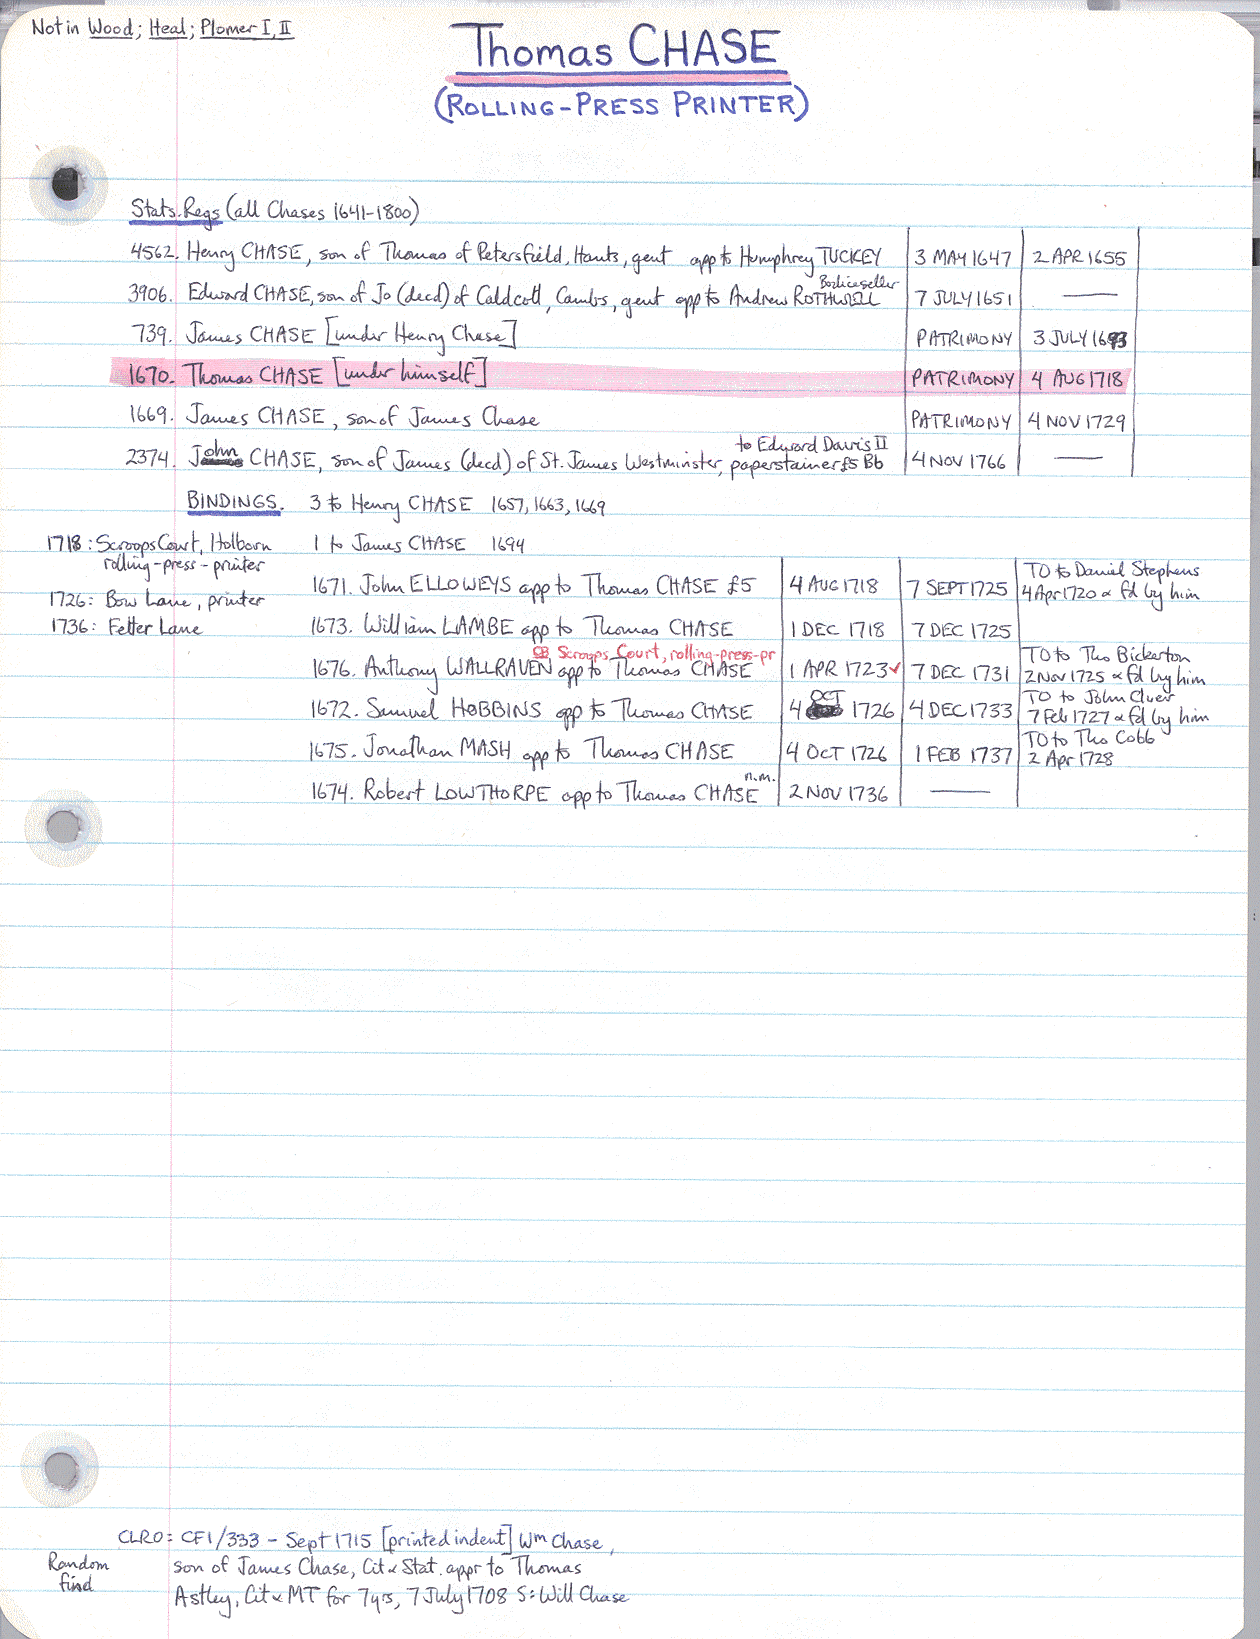 Not in Wood; Heal; Plomer I, II
Thomas CHASE
(ROLLING-PRESS PRINTER)
Stats. Regs (all Chases 1641-1800)
4562. Henry CHASE, son of Thomas of Petersfield, Hants, gent app to Humphrey TUCKEY 3 MAY 1647 2 APR 1655
Bodiceseller
3906. Edward CHASE, son of Jo (decd) of Caldcott, Cambs, gent app to Andrew ROTHWELL 7 JULY 1651 —
739. James CHASE [under Henry Chase] PATRIMONY 3 JULY 1693
1670. Thomas CHASE [under himself] PATRIMONY 4 AUG 1718
1669. James CHASE, son of James Chase PATRIMONY 4 NOV 1729
to Edward Davis II
2374. John CHASE, son of James (decd) of St. James Westminster, paperstainer £5 Bb 4 NOV 1766 —
BINDINGS. 3 to Henry CHASE 1657, 1663, 1669
1718: Scroops Court, Holborn 1 to James CHASE 1694
rolling-press-printer
TO to Daniel Stephens
1671. John ELLOWEYS app to Thomas CHASE £5 4 AUG 1718 7 SEPT 1725 4 Apr 1720 & fd by him
1726: Bow Lane, printer
1736: Fetter Lane 1673. William LAMBE app to Thomas CHASE 1 DEC 1718 7 DEC 1725
CB Scroops Court, rolling-press-pr TO to Tho Bickerton
1676. Anthony WALLRAVEN app to Thomas CHASE 1 APR 1723 ✓ 7 DEC 1731 2 Nov 1725 & fd by him
OCT TO to John Cluer
1672. Samuel HOBBINS app to Thomas CHASE 4 1726 4 DEC 1733 7 Feb 1727 & fd by him
TO to Tho Cobb
1675. Jonathan MASH app to Thomas CHASE 4 OCT 1726 1 FEB 1737 2 Apr 1728
n.m.
1674. Robert LOWTHORPE app to Thomas CHASE 2 NOV 1736 —
CLRO: CF1/333 - Sept 1715 [printed indent] Wm Chase,
Random son of James Chase, Cit & Stat. appr to Thomas
find
Astley, Cit & MT for 7 yrs, 7 July 1708 S: Will Chase